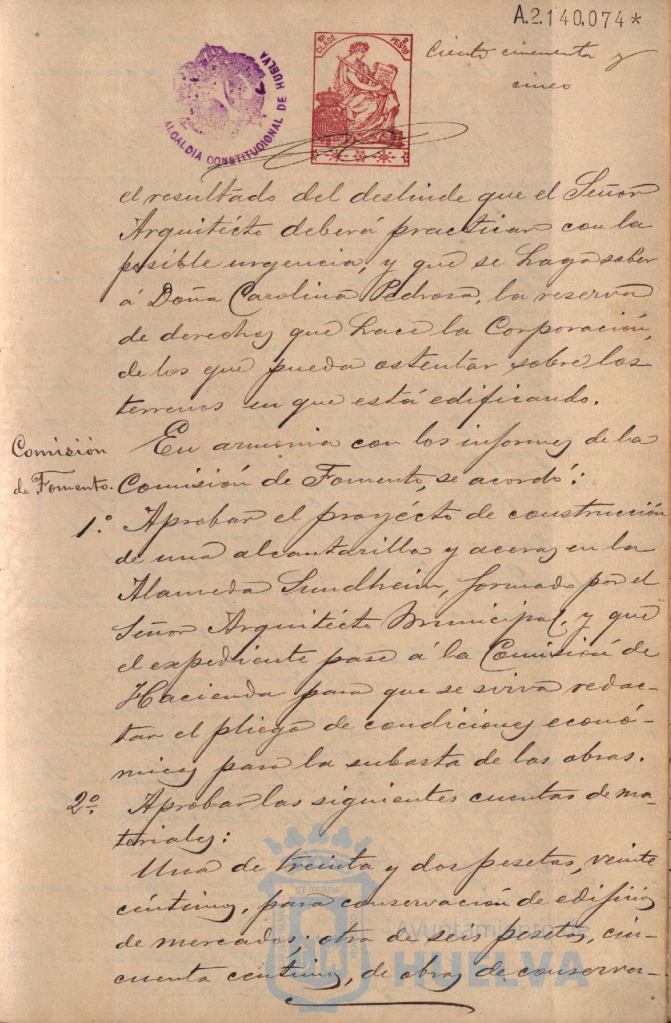 A.2.140,074*
Ciento cincuenta y
cinco
ALCALDÍA CONSTITUCIONAL DE HUELVA
CLASE
PESTAS
el resultado del deslinde que el Señor
Arquitécto deberá practicar con la
posible urgencia, y que se haga saber
á Doña Carolina Pedrosa, la reserva
de derechos que hace la Corporación,
de los que pueda ostentar sobre los
terrenos en que está edificando.
Comisión
de Fomento.
En armonia con los informes de la
Comisión de Fomento, se acordó:
1.º Aprobar el proyécto de construcción
de una alcantarilla y aceras en la
Alameda Sundheim, formado por el
Señor Arquitécto Municipal, y que
el expediente pase á la Comisión de
Hacienda para que se sirva redac-
tar el pliego de condiciones econó-
micas para la subasta de las obras.
2.º Aprobar las siguientes cuentas de ma-
teriales:
Una de treinta y dos pesetas, veinte
céntimos, para conservación de edificios
de mercados; otra de seis pesetas, cin-
cuenta céntimos, de obras de conserva-
Ayuntamiento de
HUELVA